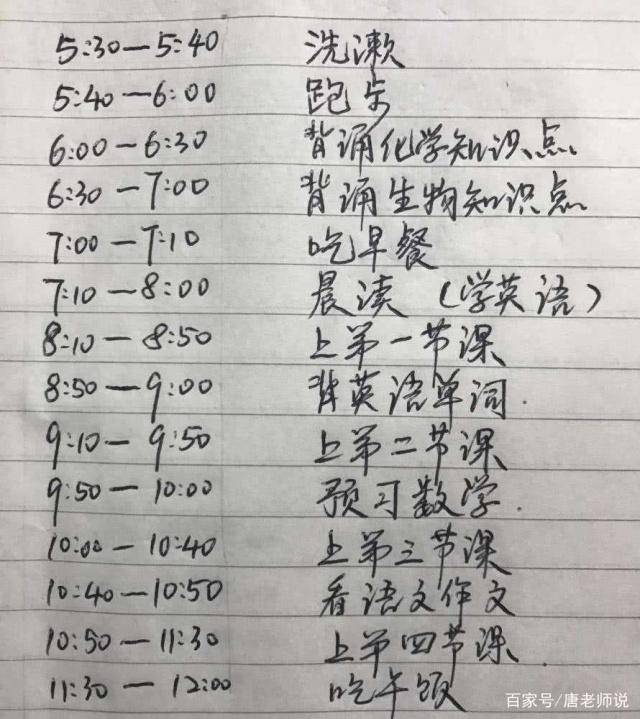 5:30—5:40 洗漱
5:40—6:00 跑步
6:00—6:30 背诵化学知识点
6:30—7:00 背诵生物知识点
7:00—7:10 吃早餐
7:10—8:00 晨读（学英语）
8:10—8:50 上第一节课
8:50—9:00 背英语单词.
9:10—9:50 上第二节课
9:50—10:00 预习数学.
10:00—10:40 上第三节课
10:40—10:50 看语文作文
10:50—11:30 上第四节课.
11:30—12:00 吃午饭
百家号/唐老师说